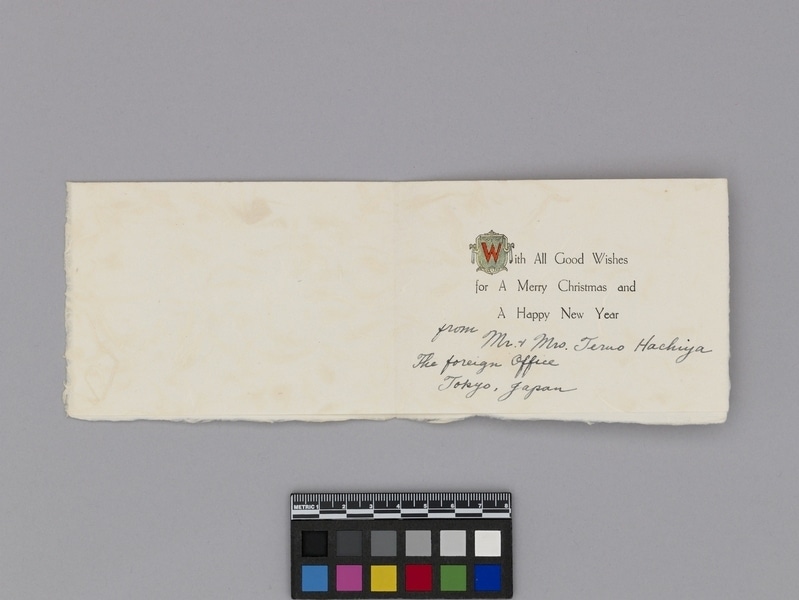 With All Good Wishes
for A Merry Christmas and
A Happy New Year
from Mr. + Mrs. Teruo Hachiya
The foreign Office
Tokyo, Japan
METRIC 1 2 3 4 5 6 7 8